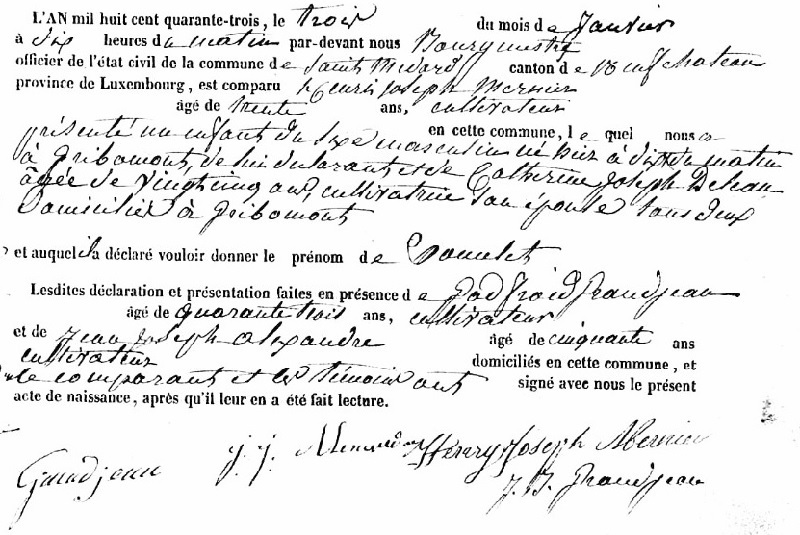 L'AN mil huit cent quarante-trois, le trois du mois de Janvier
à dix heures du matin par-devant nous Bourgmestre
officier de l'état civil de la commune de Saint Médard canton de Neufchateau
province de Luxembourg, est comparu Henri Joseph Mernier
âgé de trente ans, cultivateur
en cette commune, le quel nous a
présenté un enfant du sexe masculin né hier à dix du matin
à Gribomont, de lui déclarant et de Catherine Joseph
âgée de vingt cinq ans, cultivatrice son épouse tous deux
domiciliés à Gribomont
et auquel il a déclaré vouloir donner le prénom de
Lesdites déclaration et présentation faites en présence de Godfroid Grandjean
âgé de quarante trois ans, cultivateur
et de Jean Joseph alexandre âgé de cinquante ans
cultivateur domiciliés en cette commune, et
le comparant et les témoins ont signé avec nous le présent
acte de naissance, après qu'il leur en a été fait lecture.
Grandjean J. J. Henry Joseph Mernier
J. J. Grandjean